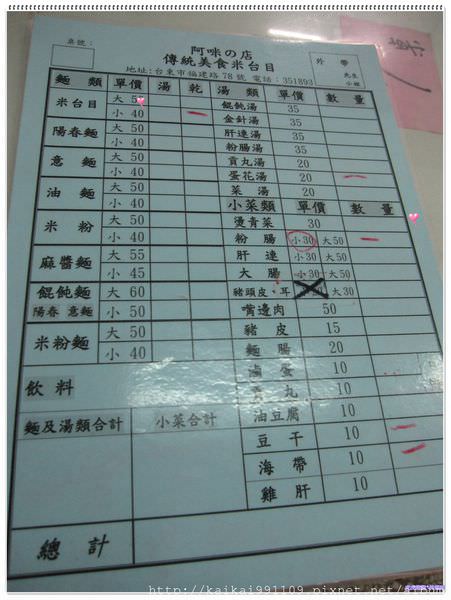 桌號：
阿咪の店
傳統美食米台目
外 帶
先生
小姐
地址:台東市福建路78號 電話:351893
麵 類 單價 湯 乾 湯 類 單價 數 量
米台目 大 50 餛飩湯 35
小 40 金針湯 35
陽春麵 大 50 肝連湯 35
小 40 粉腸湯 35
意 麵 大 50 貢丸湯 20
小 40 蛋花湯 20
油 麵 大 50 菜 湯 20
小 40 小菜類 單價 數 量
米 粉 大 50 燙青菜 30
小 40 粉 腸 小30 大50
麻醬麵 大 55 肝 連 小30 大50
小 45 大 腸 小30 大50
餛飩麵 大 60 豬頭皮、耳 大30
陽春 意麵 小 50 嘴邊肉 50
米粉麵 大 50 豬 皮 15
小 40 麵 腸 20
飲料 滷 蛋 10
貢 丸 10
麵及湯類合計 小菜合計 油豆腐 10
豆 干 10
海 帶 10
雞 肝 10
總 計